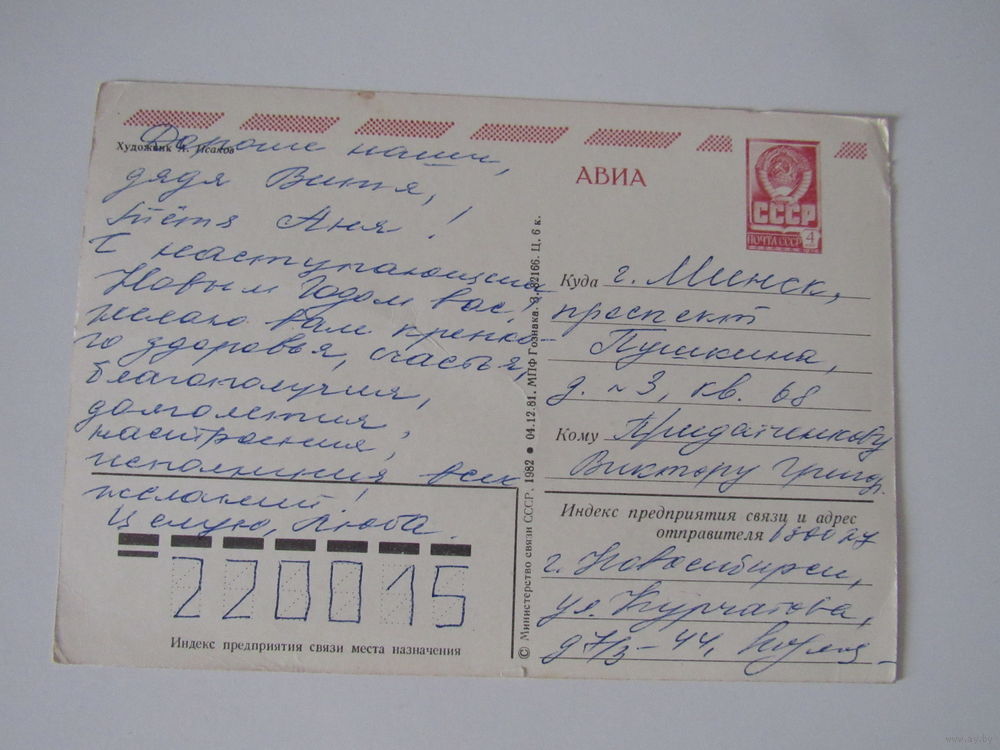 Художник А. Исаков
Дорогие наши,
дядя Витя,
тётя Аня!
С наступающим
Новым Годом вас!
желаю вам крепко-
го здоровья, счастья,
благополучия,
долголетия,
настроения,
исполнения всех
желаний!
Целую, Люба.
220015
Индекс предприятия связи места назначения
© Министерство связи СССР, 1982 • 04.12.81. МПФ Гознака. З. 82166. Ц. 6 к.
АВИА
СССР
ПОЧТА СССР
4
Куда г. Минск,
проспект
Пушкина,
д. ~ 3, кв. 68
Кому Придатченкову
Виктору Григ.
Индекс предприятия связи и адрес
отправителя
г. Новосибирск,
ул. Курчатова,
д 7/3 – 44,
www.ay.by